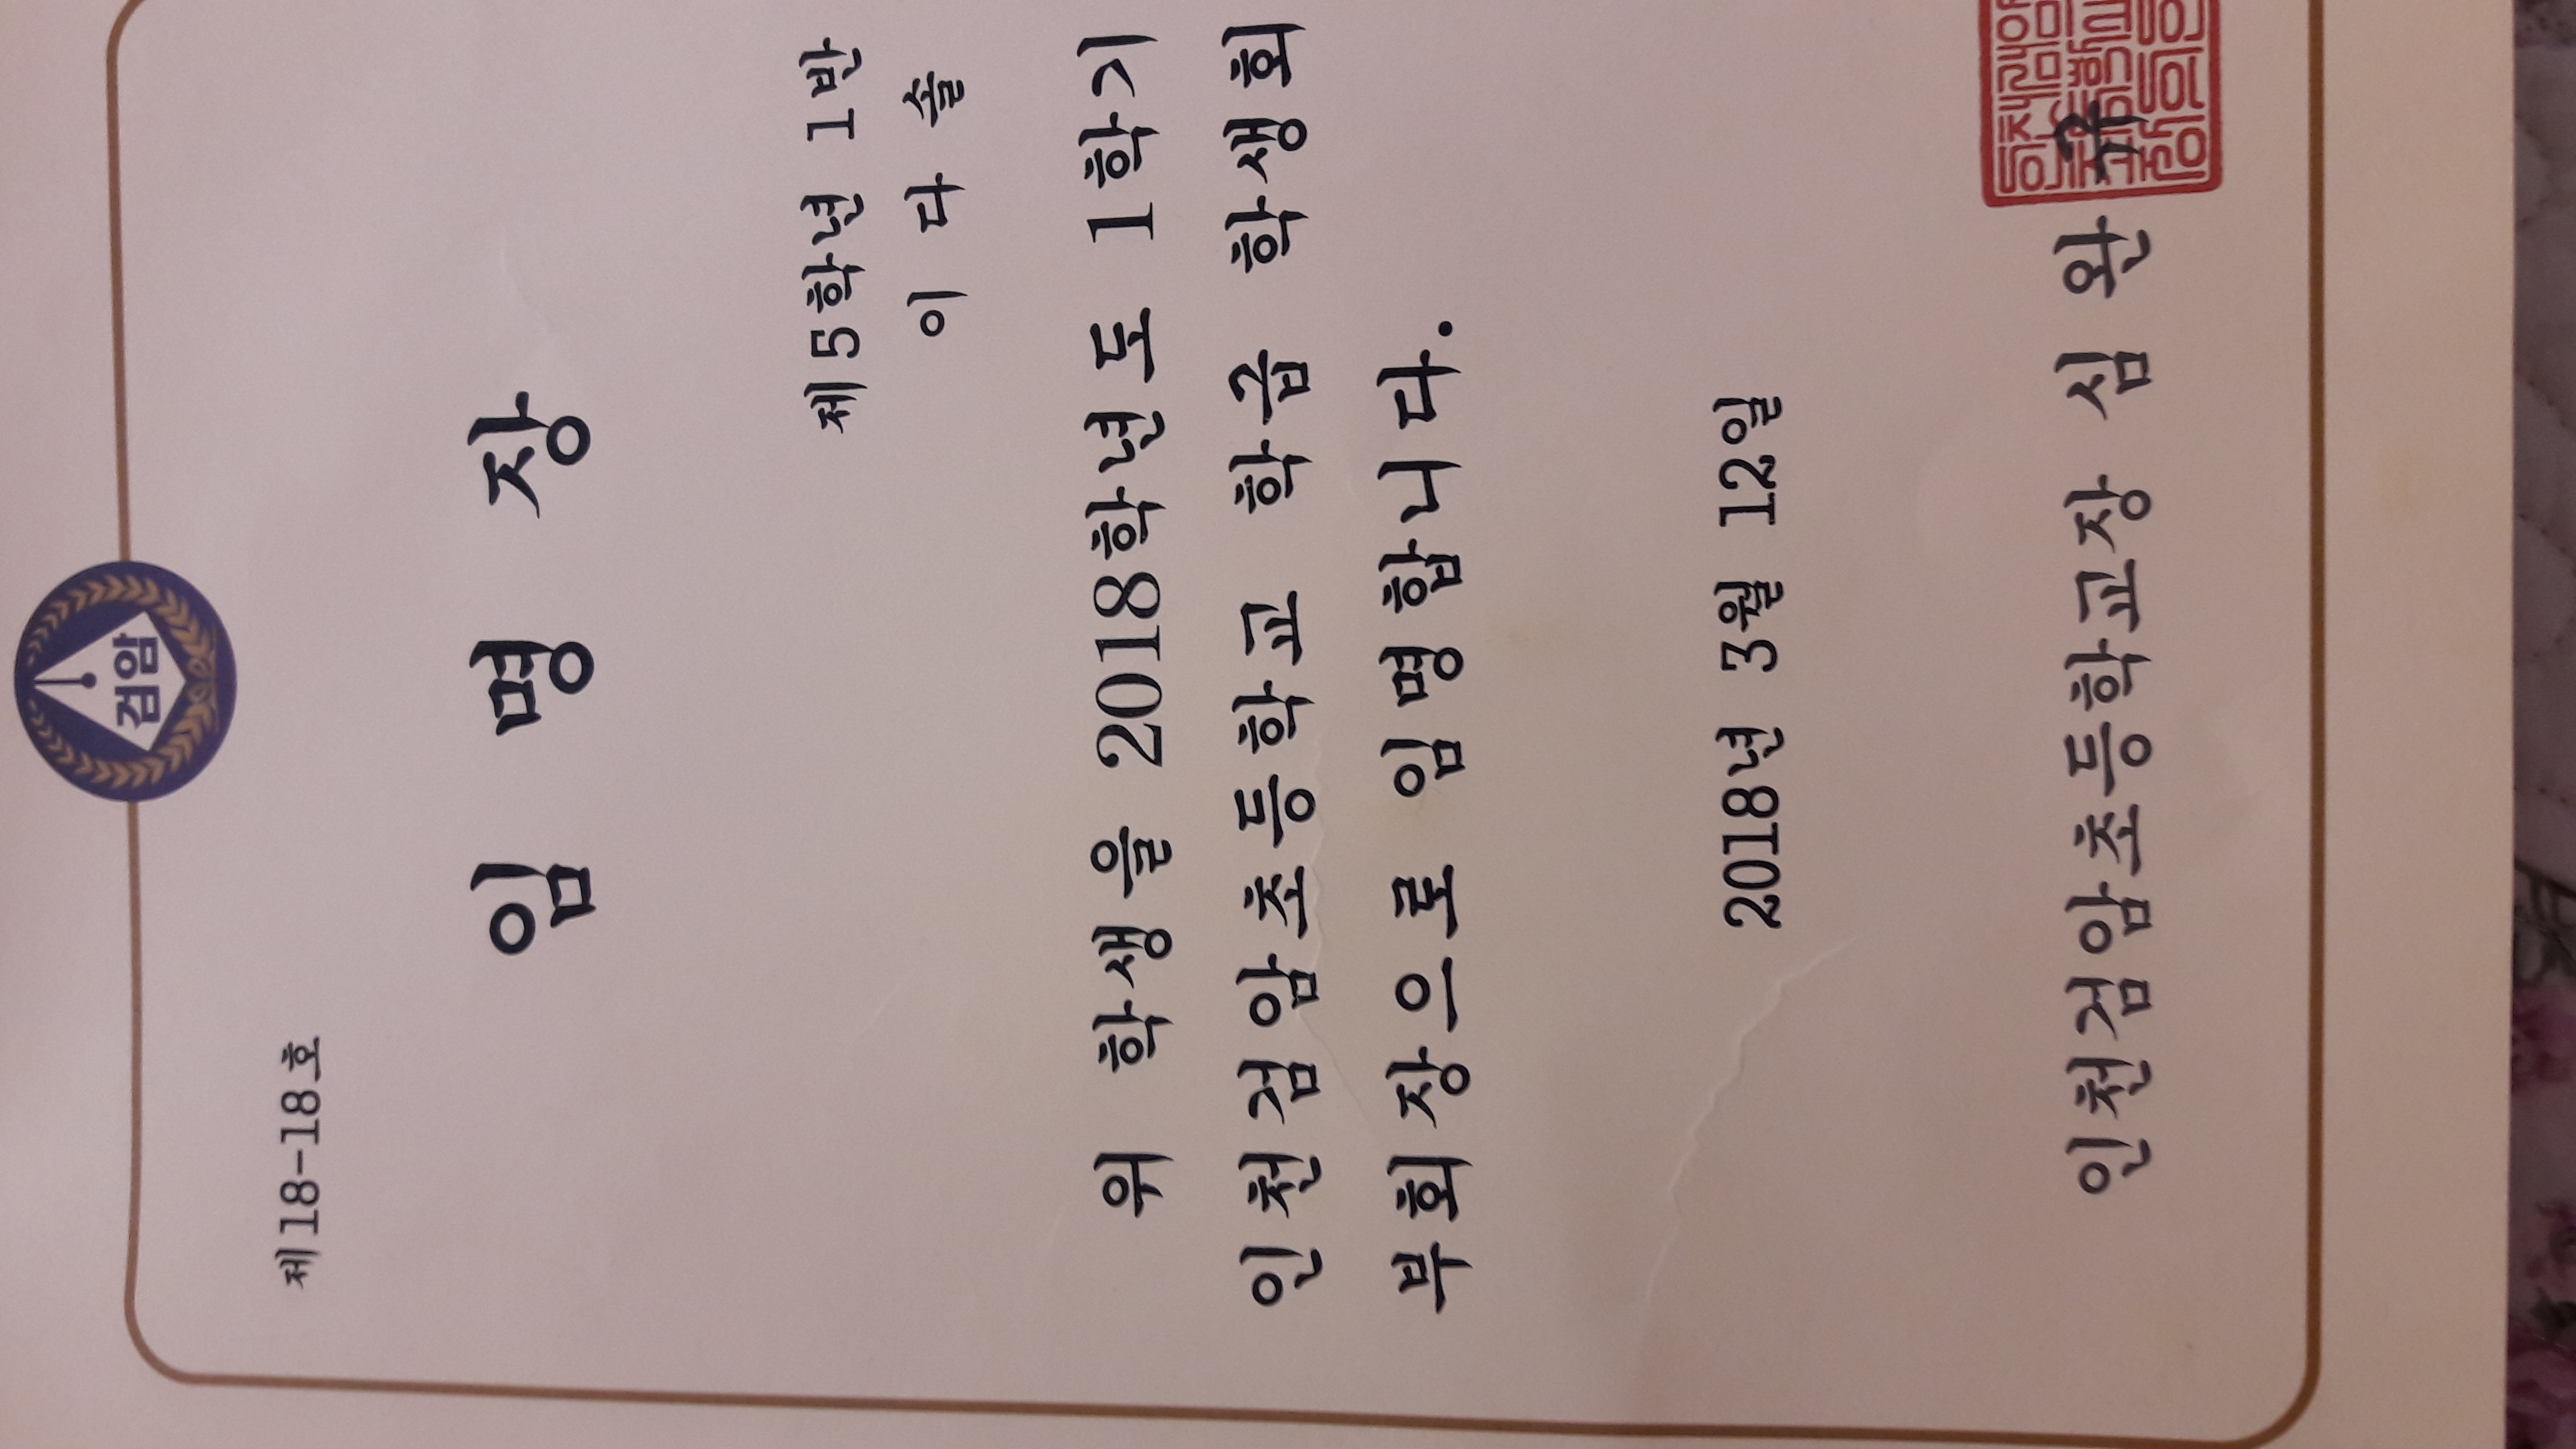 검암
제18-18호
임 명 장
제5학년 1반
이 다 솔
위 학생을 2018학년도 1학기
인천검암초등학교 학급 학생회
부회장으로 임명합니다.
2018년 3월 12일
인천검암초등학교장 심 완